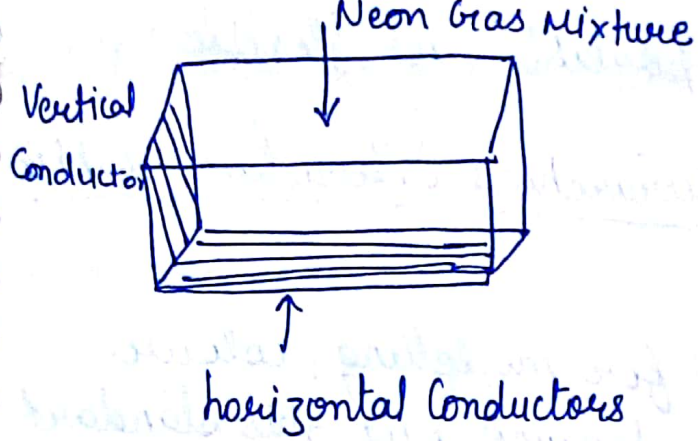 Neon Gas Mixture
Vertical
Conductor
horizontal Conductors